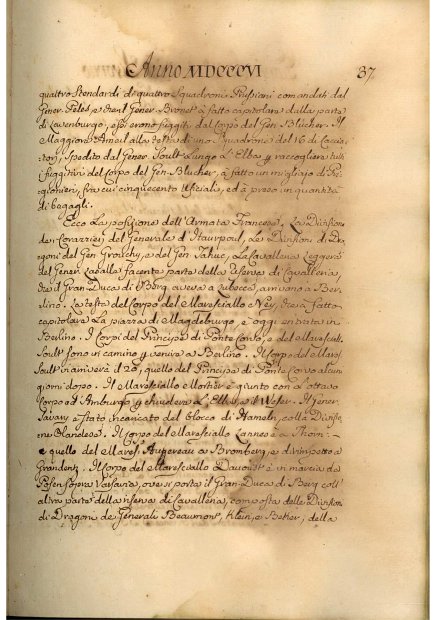 Anno MDCCCVI
37
quattro Stendardi de quattro Squadroni Prussiani comandati dal
Gener. Peles, e che il Gener. Bronet à fatto capitolare dalla parte
di Lavenburgo, essi erono fuggiti dal Corpo del Gen. Blucher. Il
Maggiore Ameil alla testa di uno Squadrone del 16 di Caccia-
tori, spedito dal Gener. Soult lungo l'Elba, a raccogliere tutti
i fuggitivi del Corpo del Gen. Blucher, à fatto un migliajo di Pri-
gionieri, fra cui cinquecento Uficiali, ed à preso in quantità
di bagagli.
Ecco la posizione dell'Armata Francese. La Divisione
de Corazzieri del Generale d'Hautpoul, le Divisioni di Dra-
goni del Gen. Grouchy, e del Gen. Sahuc, la Cavalleria Leggera
del Gener. Lasalle facente parte della riserva di Cavalleria,
che il Gran Duca di Berg aveva a Lubecco, arrivano a Ber-
lino. La testa del Corpo del Maresciallo Ney, che à fatto
capitolare la piazza di Magdeburgo, è oggi entrata in
Berlino. I Corpi del Principe di Ponte Corvo, e del Maresciallo
Soult sono in camino per venire a Berlino. Il Corpo del Mares.
Soult vi arriverà il 20, quello del Principe di Ponte Corvo alcuni
giorni dopo. Il Maresciallo Mortier è giunto con l'ottavo
Corpo ad Amburgo per chiudere l'Elba, e il Weser. Il Gener.
Savary è stato incaricato del blocco di Hameln, colla Divisio-
ne Olandese. Il Corpo del Maresciallo Lannes è a Thorn:
e quello del Mares. Augereau a Bromberg, e dirimpetto a
Graudentz. Il Corpo del Maresciallo Davoust è in marcia da
Posen sopra Varsavia, ove si porta il Gran Duca di Berg coll'
altra parte della riserva di Cavalleria, composta delle Divisioni
di Dragoni de Generali Beaumont, Klein, e Beker, della